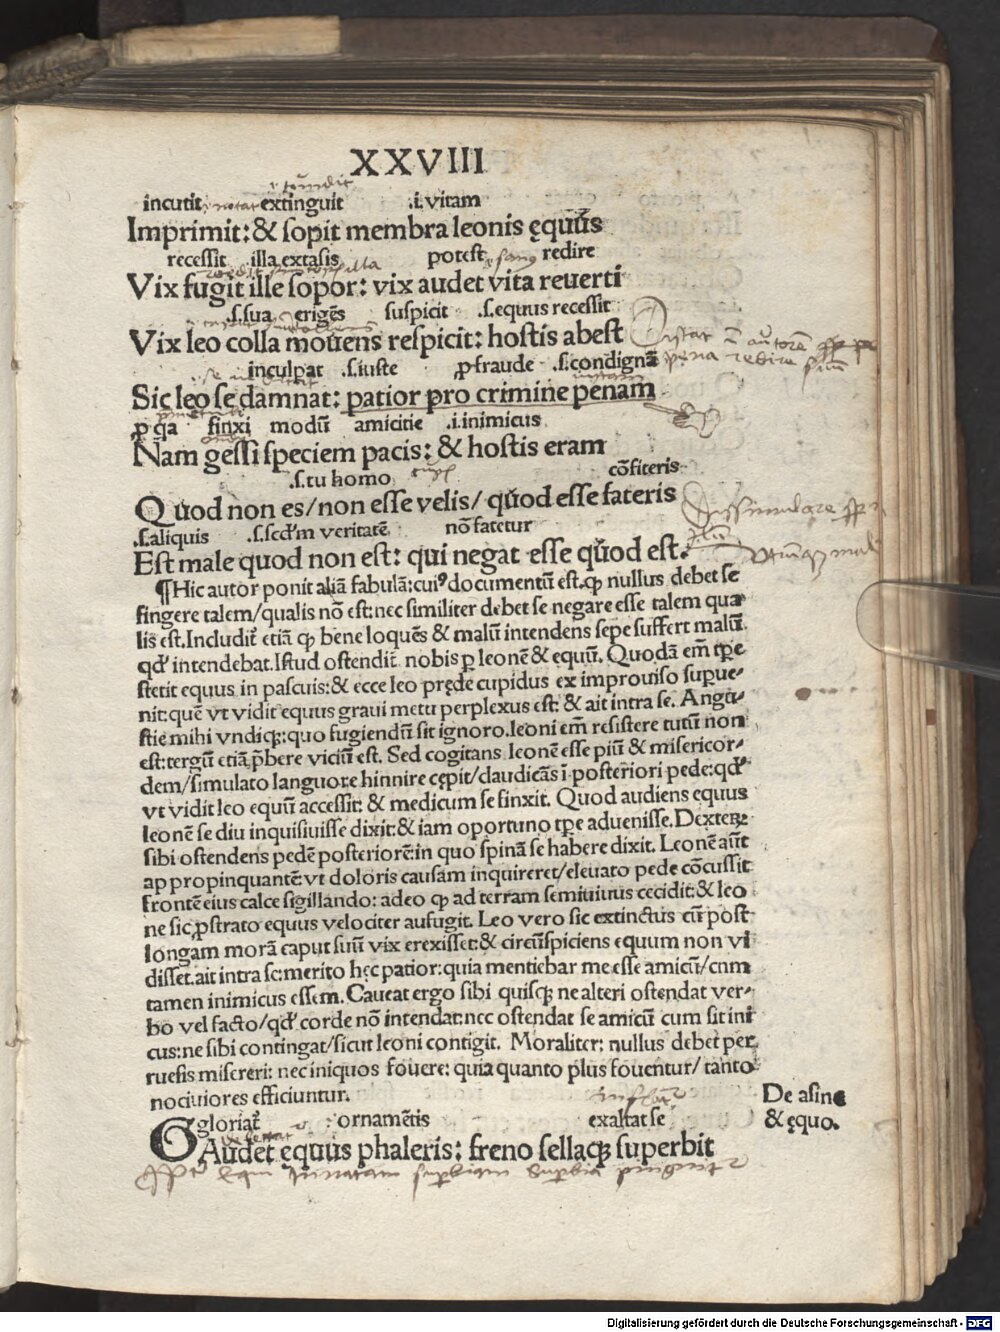 XXVIII
incutit extinguit .i. vitam
Imprimit: & sopit membra leonis ęquus
recessit illa extasis potest redire
Vix fugit ille sopor: vix audet vita reuerti
.s. sua erigēs suspicit .s. equus recessit
Vix leo colla mouens respicit: hostis abest
inculpat .s. iuste p fraude .s. condignā
Sic leo se damnat: patior pro crimine penam
finxi modū amicitie .i. inimicus
Nam gessi speciem pacis: & hostis eram
.s. tu homo cōfiteris
Quod non es/ non esse velis/ quod esse fateris
.s. aliquis .s. scd'm veritatē nō fatetur
Est male quod non est: qui negat esse quod est.
¶ Hic autor ponit aliā fabulā: cui⁹ documentū est. ꝙ nullus debet se
fingere talem/ qualis nō est: nec similiter debet se negare esse talem qua⸗
lis est. Includit etiā ꝙ bene loquēs & malū intendens sepe suffert malū.
qd' intendebat. Istud ostendit nobis ꝑ leonē & equū. Quodā em̄ tpe
stetit equus in pascuis: & ecce leo pręde cupidus ex improuiso supue⸗
nit: quē vt vidit equus graui metu perplexus est: & ait intra se. Angu⸗
stie mihi vndiqꝫ: quo fugiendū sit ignoro. leoni em̄ resistere tutū non
est: tergū etiā p̄bere viciū est. Sed cogitans leonē esse piū & misericor⸗
dem/ simulato languore hinnire cępit/ claudicās ī posteriori pede: qd'
vt vidit leo equū accessit: & medicum se finxit. Quod audiens equus
leonē se diu inquisiuisse dixit: & iam oportuno tpe aduenisse. Dextere
sibi ostendens pedē posteriorē: in quo spinā se habere dixit. Leonē aūt
appropinquantē: vt doloris causam inquireret/ eleuato pede cōcussit
frontē eius calce sigillando: adeo ꝙ ad terram semiuiuus cecidit: & leo
ne sic ꝓstrato equus velociter aufugit. Leo vero sic extinctus cū post
longam morā caput suū vix erexisset: & circūspiciens equum non vi
disset. ait intra se: merito hęc patior: quia mentiebar me esse amicū/ cum
tamen inimicus essem. Caueat ergo sibi quisqꝫ ne alteri ostendat ver⸗
bo vel facto/ qd' corde nō intendat: nec ostendat se amicū cum sit ini
cus: ne sibi contingat/ sicut leoni contigit. Moraliter: nullus debet per
uersis misereri: nec iniquos fouere: quia quanto plus fouentur/ tanto
nociuiores efficiuntur.
De asino
& ęquo.
gloriat ornamētis exaltat se
GAudet ęquus phaleris: freno sellaqꝫ superbit
Digitalisierung gefördert durch die Deutsche Forschungsgemeinschaft - DFG